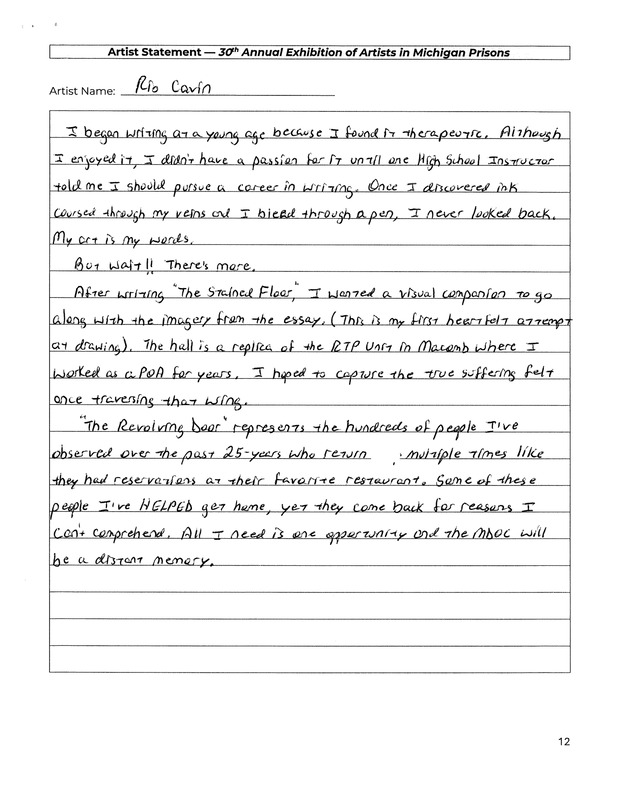 Artist Statement — 30th Annual Exhibition of Artists in Michigan Prisons
Artist Name: Rio Cavin
I began writing at a young age because I found it therapeutic. Although
I enjoyed it, I didn't have a passion for it untill one High School Instructor
told me I should pursue a career in writing. Once I discovered ink
coursed through my veins and I bleed through a pen, I never looked back.
My art is my words.
But wait!! There's more.
After writing "The Stained Floor," I wanted a visual companion to go
along with the imagery from the essay. (This is my first heartfelt attempt
at drawing). The hall is a replica of the RTP Unit in Macomb where I
worked as a POA for years. I hoped to capture the true suffering felt
once traversing that wing.
"The Revolving Door" represents the hundreds of people I've
observed over the past 25-years who return multiple times like
they had reservations at their favorite restaurant. Some of these
people I've HELPED get home, yet they come back for reasons I
can't comprehend. All I need is one opportunity and the MDOC will
be a distant memory.
12